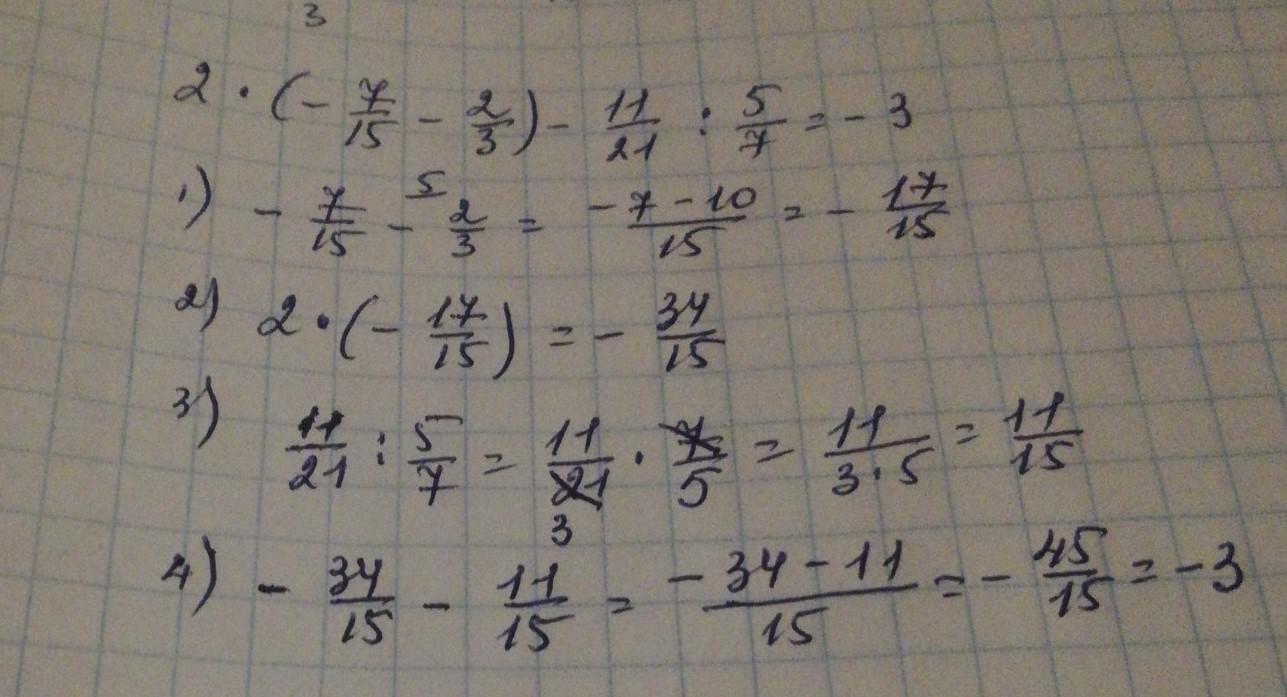 3
2 · (- 7/15 - 2/3) - 11/21 : 5/7 = - 3
1) - 7/15 - 5 2/3 = -7-10/15 = - 17/15
2) 2 · (- 17/15) = - 34/15
3) 11/21 : 5/7 = 11/21 3 · 7/5 = 11/3·5 = 11/15
4) - 34/15 - 11/15 = -34-11/15 = - 45/15 = -3